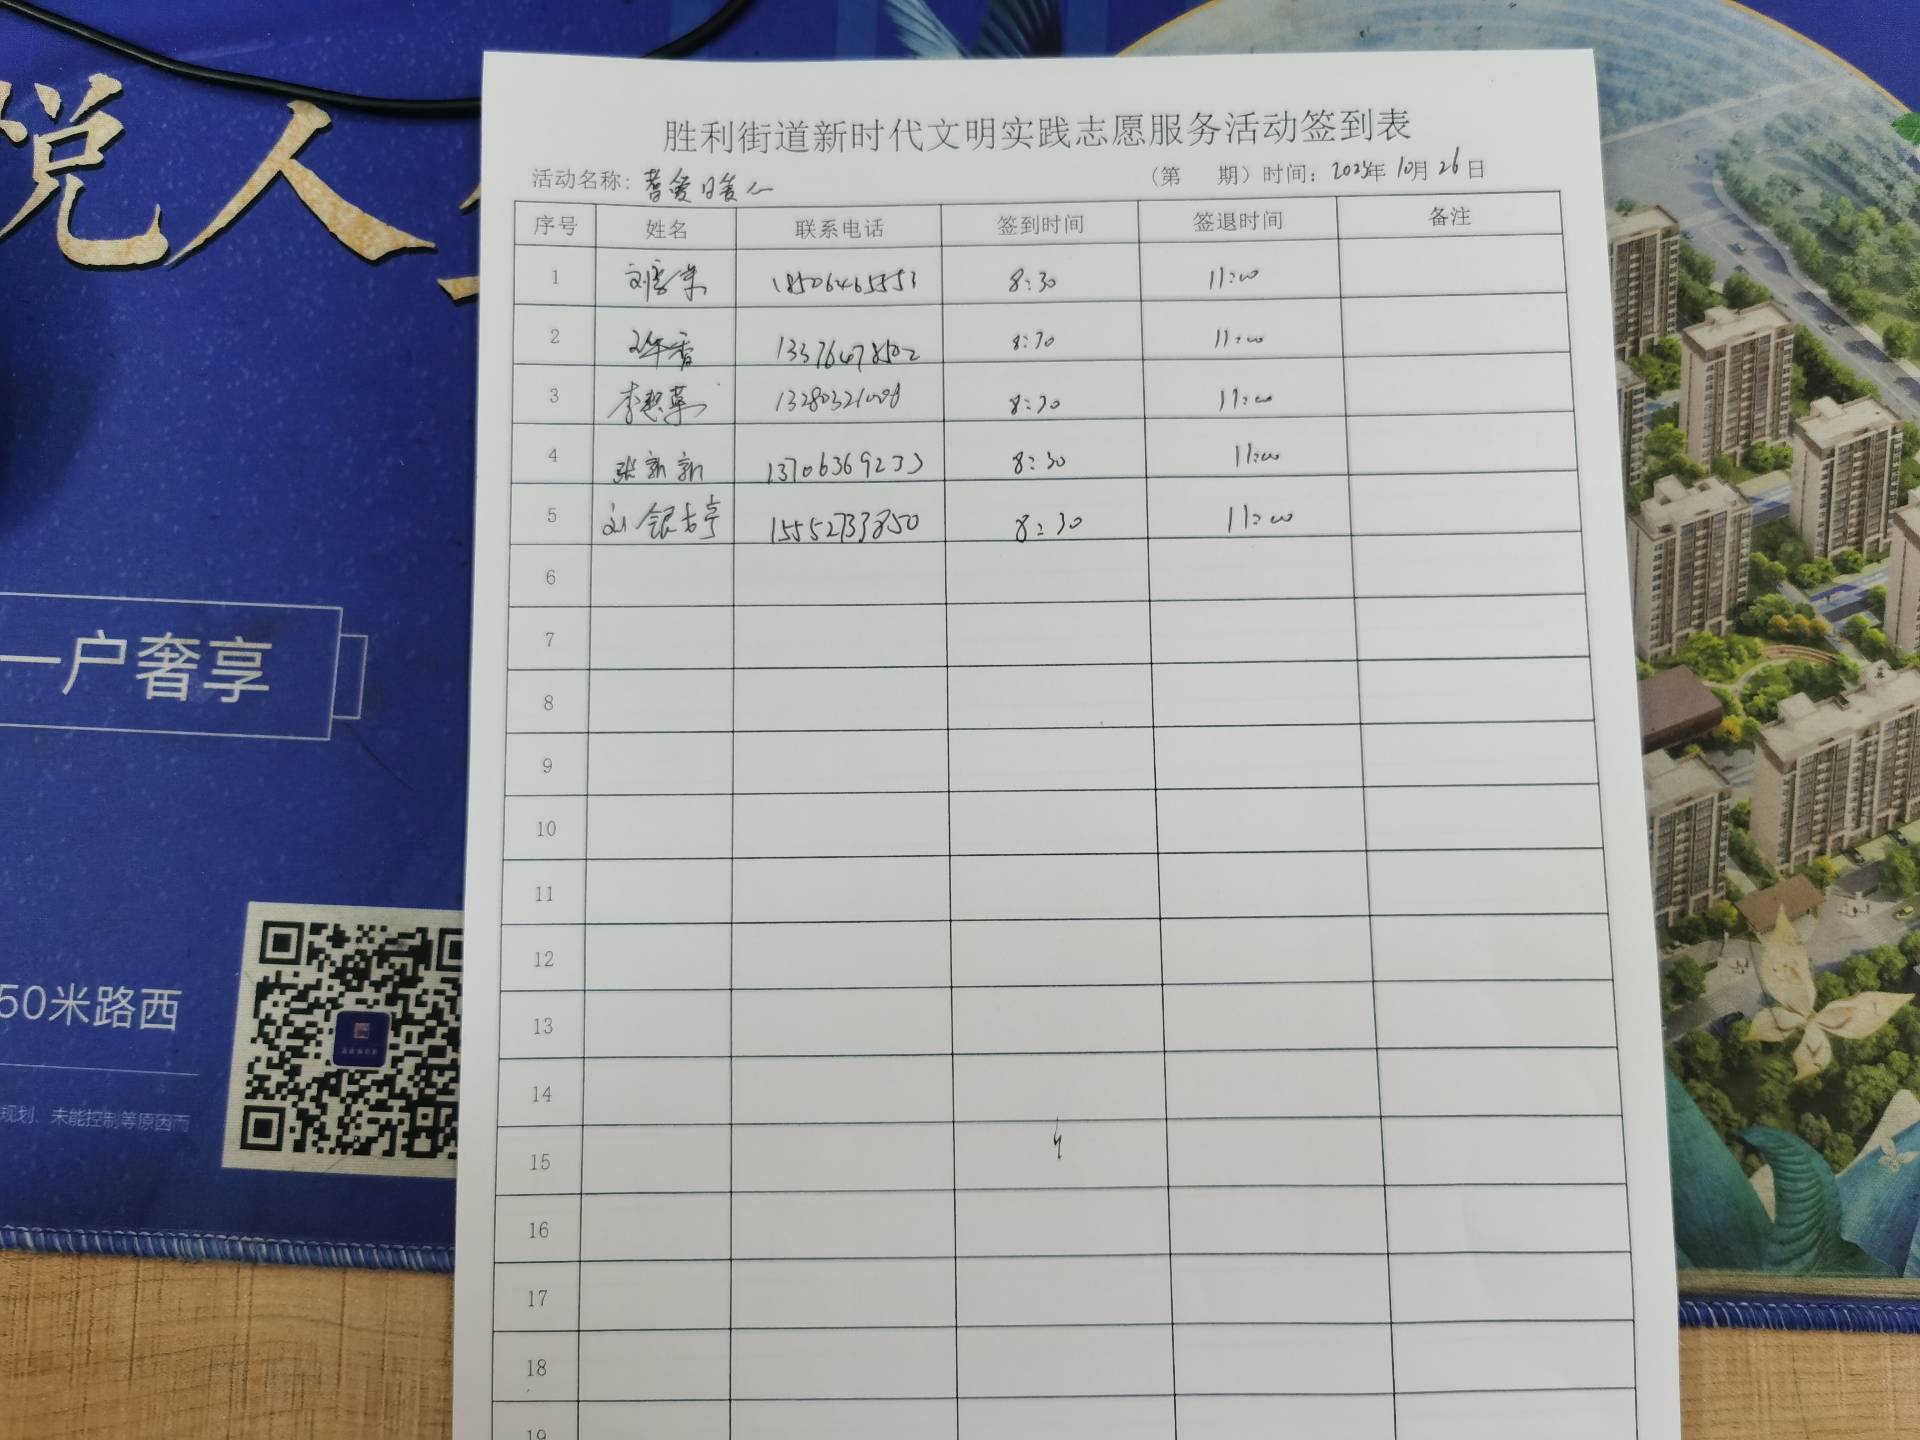 悦人
一户奢享
50米路西
规划、未能控制等原因而
胜利街道新时代文明实践志愿服务活动签到表
活动名称: 暖人 (第 期) 时间: 年10月26日
序号 姓名 联系电话 签到时间 签退时间 备注
1 8:30 11:00
2 香 13376478502 8:30 11:00
3 李 8:30 11:00
4 张新新 13706369233 8:30 11:00
5 刘银婷 15552733850 8:30 11:00
6
7
8
9
10
11
12
13
14
15
16
17
18
19